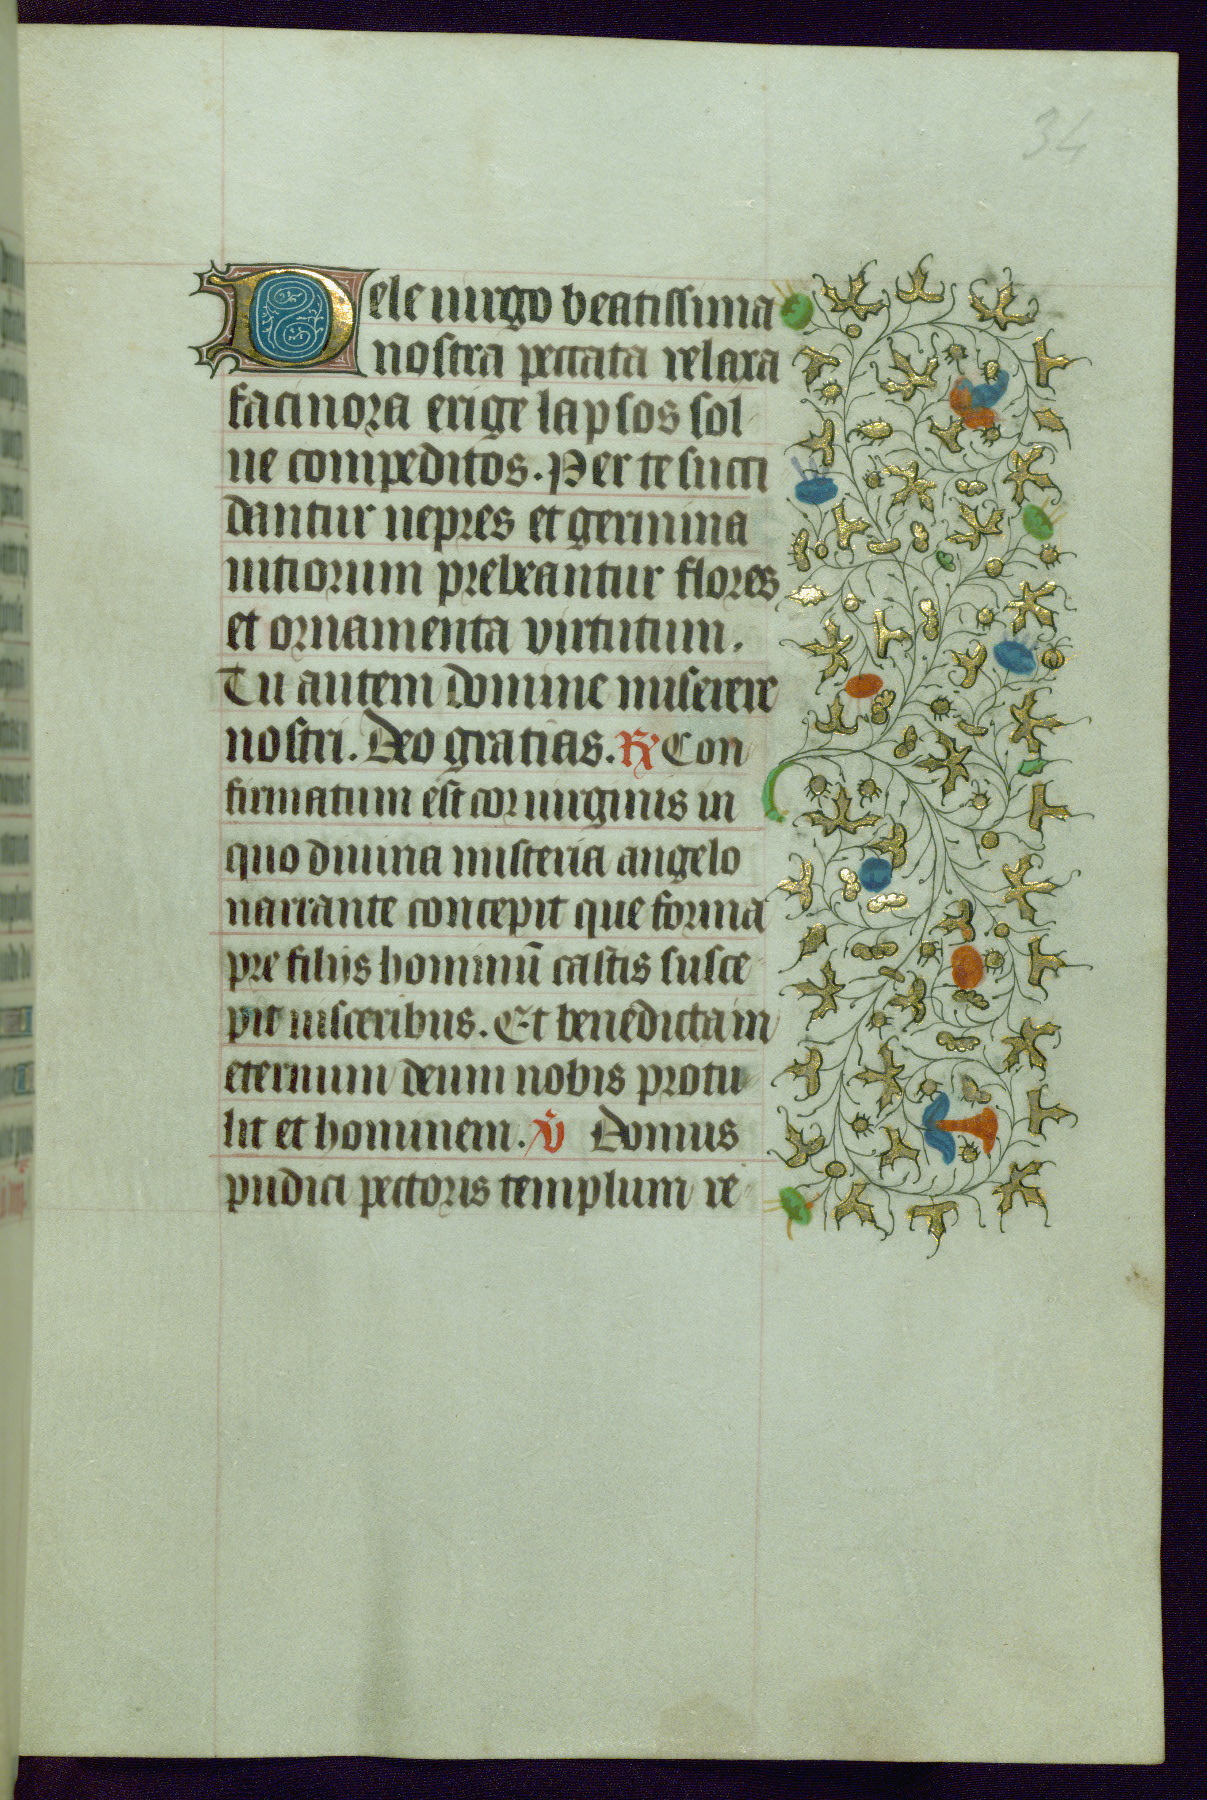 34
Dele uirgo beatissima
nostra peccata relaxa
facinora erige lapsos sol
ue compeditos. Per te succi
dantur uepres et germina
uitiorum prebeantur flores
et ornamenta virtutum.
Tu autem domine miserere
nostri. Deo gratias. R Con
firmatum est cor uirginis in
quo diuina misteria angelo
narrante concepit que forma
pre filiis hominū castis susce
pit uisceribus. Et benedicta in
eternum deum nobis protu
lit et hominem. v Domus
pudici pectoris templum re